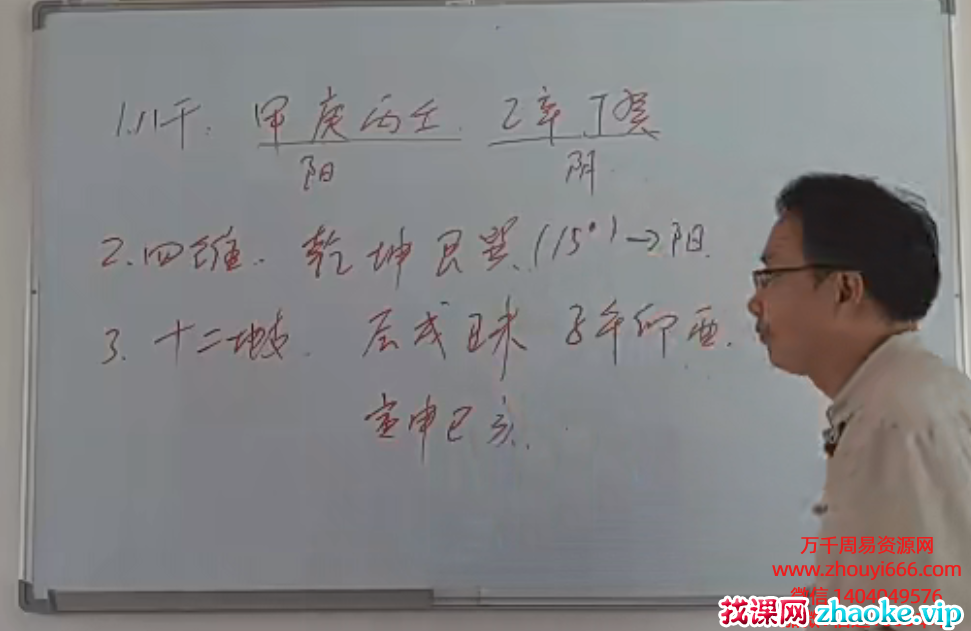 1.八干. 甲庚丙壬. 乙辛丁癸
阳 阴
2.四维. 乾坤艮巽(15°)→阳
3. 十二地支. 辰戌丑未 子午卯酉.
寅申巳亥.
万千周易资源网
www.zhouyi666.com
微信 1404049576
找课网 zhaoke.vip